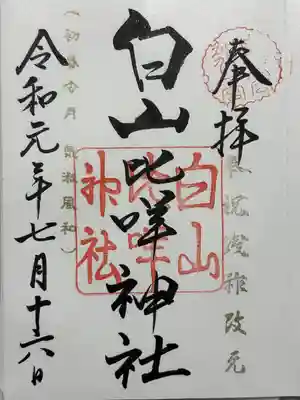 奉拝
奉祝践祚改元
白山比咩神社
白山
比咩
神社
（初春令月　気淑風和）
令和元年七月十六日